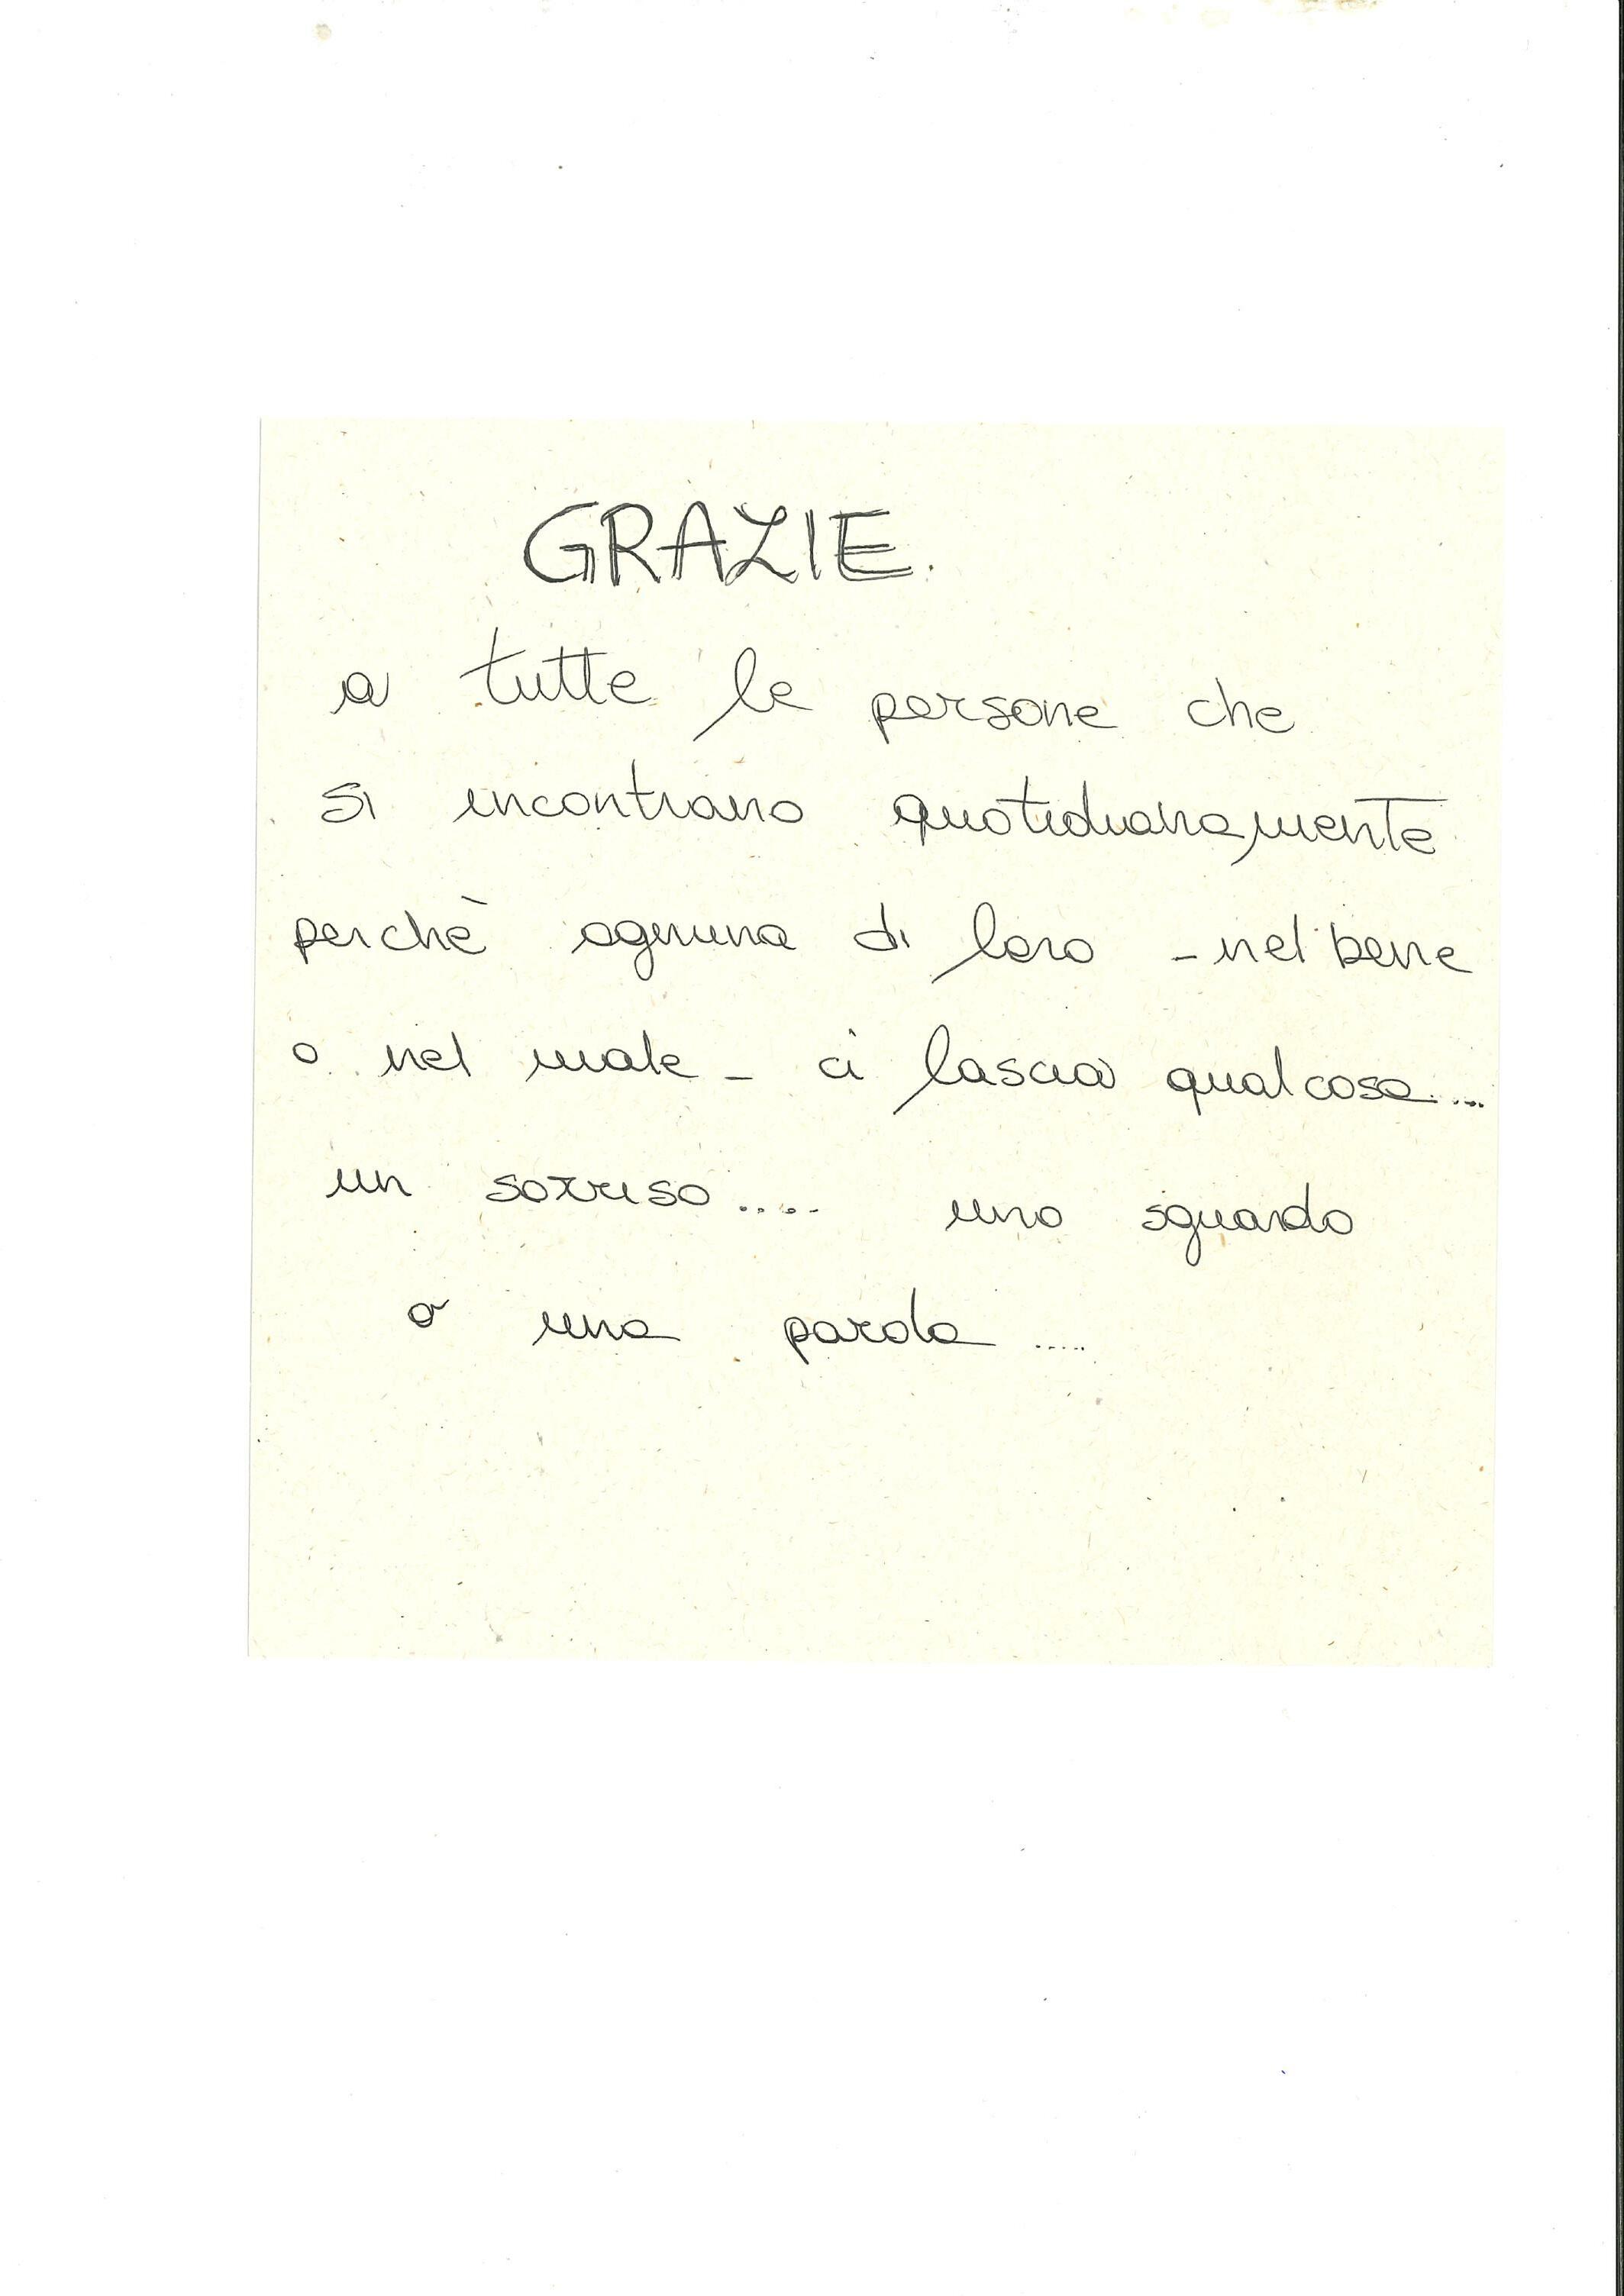 GRAZIE.
a tutte le persone che
si incontrano quotidianamente
perchè ognuna di loro - nel bene
o nel male - ci lascia qualcosa....
un sorriso.... uno sguardo
o una parola .....